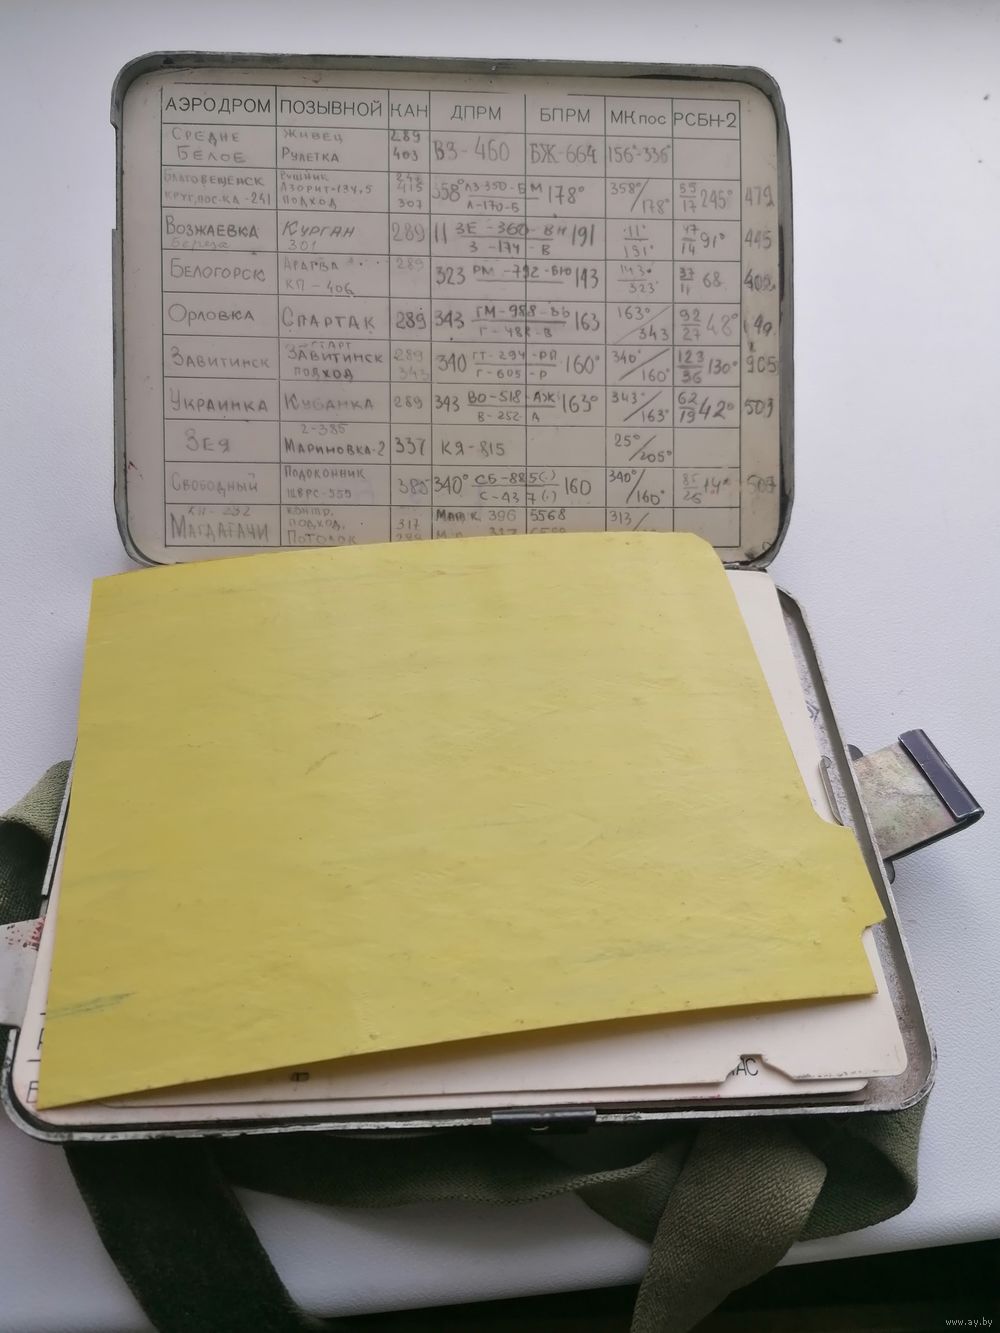 АЭРОДРОМ ПОЗЫВНОЙ КАН ДПРМ БПРМ МКпос РСБН-2
СРЕДНЕ ЖИВЕЦ 289
БЕЛОЕ РУЛЕТКА 403 ВЗ-460 БЖ-664 156°-336°
БЛАГОВЕЩЕНСК АЗОРИТ-134,5 415 358° ЛЗ-350-БМ 178° 358°/178° 55/17 245° 479
КРУГ,ПОС-КА-241 ПОДХОД 307 Л-170-Б
ВОЗЖАЕВКА КУРГАН 289 11 ЗЕ-360-ВН 191 11°/191° 47/14 91° 445
Береза 301 З-174-В
БЕЛОГОРСК 289 323 РМ-792-БЮ 143 143°/323° 37/11 68 402
КП-406
ОРЛОВКА СПАРТАК 289 343 ГМ-988-ВЬ 163 163°/343 92/27 48°
Г-482-В
СТАРТ
ЗАВИТИНСК ЗАВИТИНСК 289 340 ГТ-294-РП 160° 340°/160° 123/36 130° 905
ПОДХОД 343 Г-605-Р
УКРАИНКА КУБАНКА 289 343 ВО-518-АЖ 163° 343°/163° 62/19 42° 503
В-252-А
2-385
ЗЕЯ МАРИНОВКА-2 337 КЯ-815 25°/205°
СВОБОДНЫЙ ПОДОКОННИК 385 340° СБ-885(.) 160 340°/160° 85/25 507
ШВРС-559 С-437(.)
КП-232 КОНТР. 396 5568 313/
МАГДАГАЧИ ПОДХОД. 317
ПОТОЛОК
АС
www.ay.by